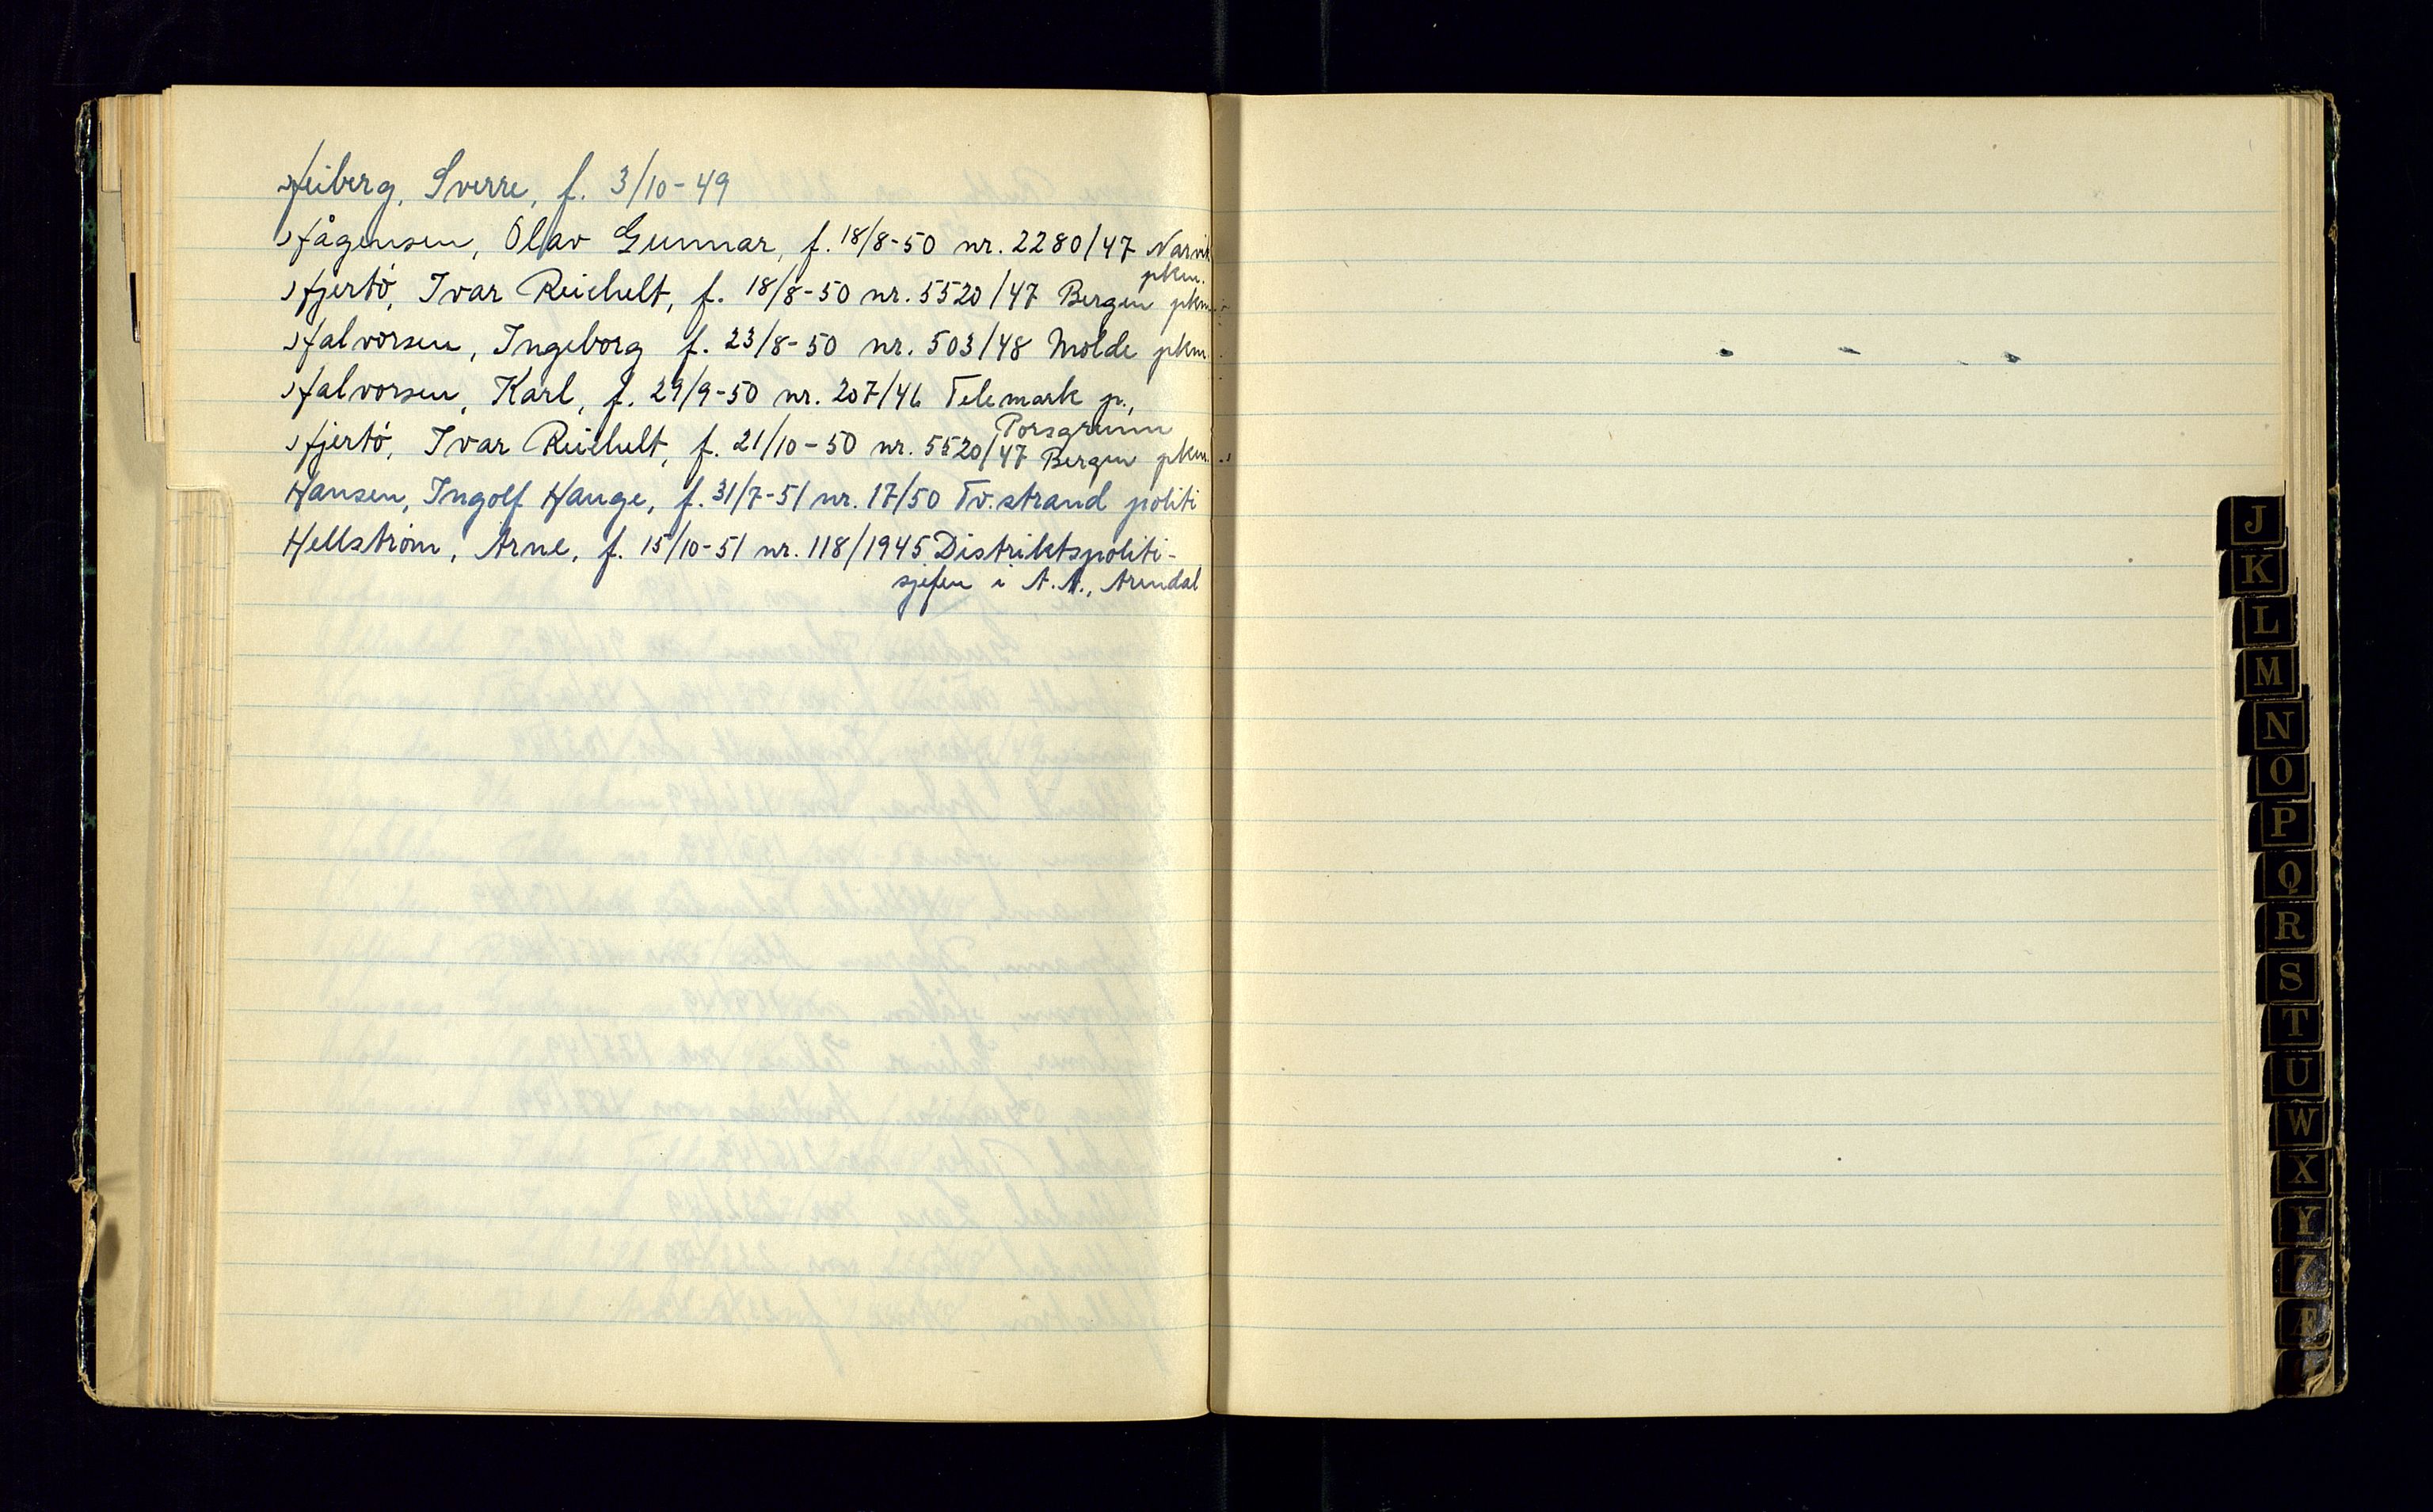 Heiberg, Sverre, f. 3/10-49
Hågensen, Olav Gunnar, f. 18/8-50 nr. 2280/47 Narvik
pkm.
Hjertö, Ivar Reichelt, f. 18/8-50 nr. 5520/47 Bergen pkm.
Halvorsen, Ingeborg f. 23/8-50 nr. 503/48 Molde pkm
Halvorsen, Karl, f. 29/9-50 nr. 207/46 Telemark p.,
Porsgrunn
Hjertö, Ivar Reichelt, f. 21/10-50 nr. 5520/47 Bergen pkm.
Hansen, Ingolf Hauge, f. 31/7-51 nr. 17/50 Tv.strand politi
Hellström, Arne, f. 15/10-51 nr. 118/1945 Distriktspoliti-
sjefen i A.A., Arendal
J
K
L
M
N
O
P
Q
R
S
T
U
W
X
Y
Z
Æ